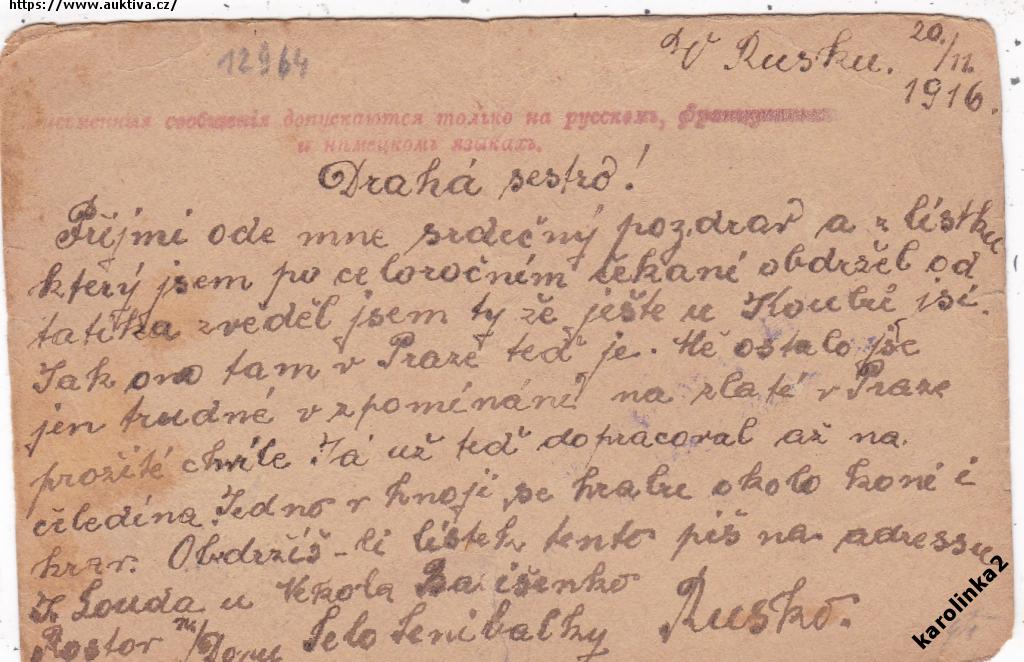 https://www.auktiva.cz/
12964
V Rusku. 20./11.
1916.
сообщенія допускаются только на русскомъ,
и нѣмецкомъ языкахъ.
Drahá sestro!
Přijmi ode mne srdečný pozdrav a z lístku
který jsem po celoročním čekané obdržel od
tatíka zvěděl jsem ty že ješte u Koubů jsi.
Jak ono tam v Praze teď je. Mě ostalo jse
jen trudné vzpomínání na zlaté v Praze
prožité chvíle. Já už teď dopracoval až na
čeledína. Jedno v hnoji se hrabu okolo koní i
krav. Obdržíš-li lístek tento piš na adressu
Louda u
Rostov n/Donu Selo Rusko.
karolinka2